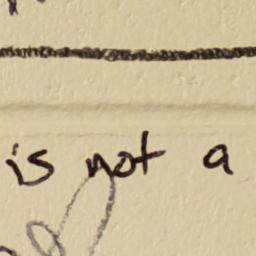 is not a